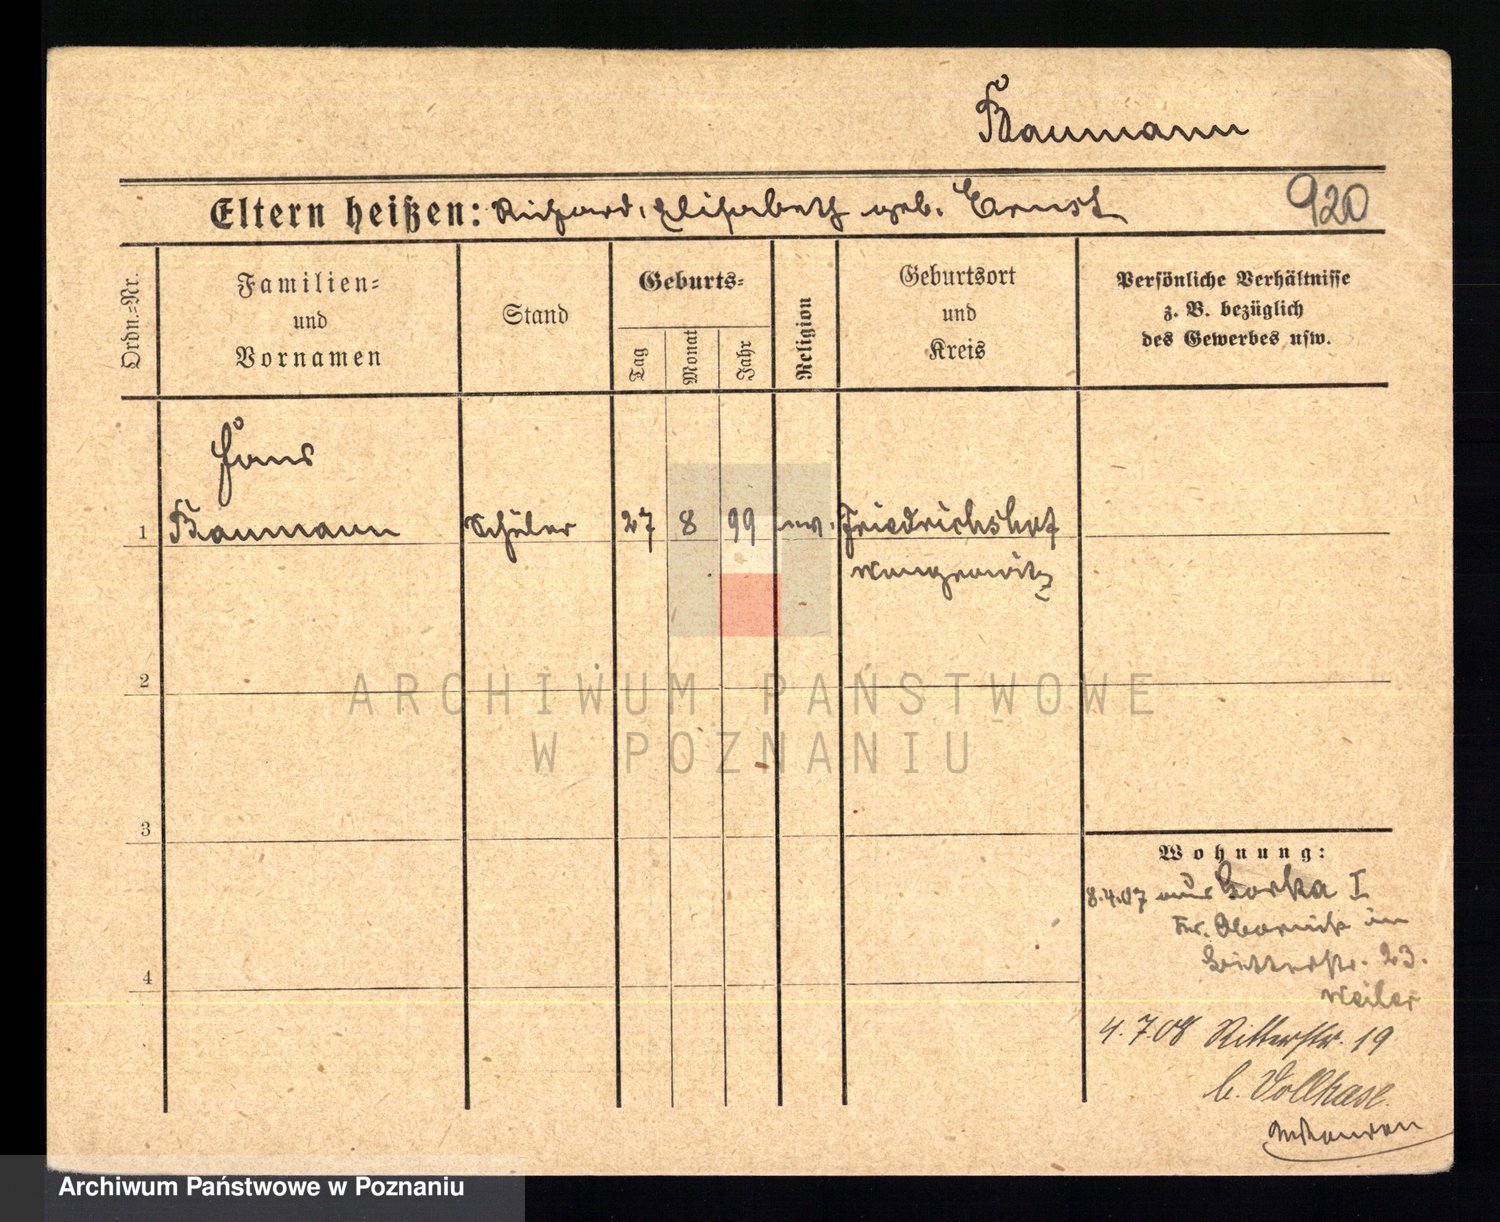 Baumann
Eltern heißen: Richard, Elisabeth geb. Ernst
920
Ordn.-Nr.
Familien-
und
Vornamen
Stand
Geburts-
Tag
Monat
Jahr
Religion
Geburtsort
und
Kreis
Persönliche Verhältnisse
z. B. bezüglich
des Gewerbes usw.
Hans
1 Baumann Schüler 27 8 99 ev. Friedrichshof
Wongrowitz
2
ARCHIWUM PAŃSTWOWE
W POZNANIU
3
Wohnung:
8.4.07 aus Gorka I
Kr. Obornik in
Ritterstr. 23.
4
Weiler
4.7.08 Ritterstr. 19
b. Vollhase
Archiwum Państwowe w Poznaniu